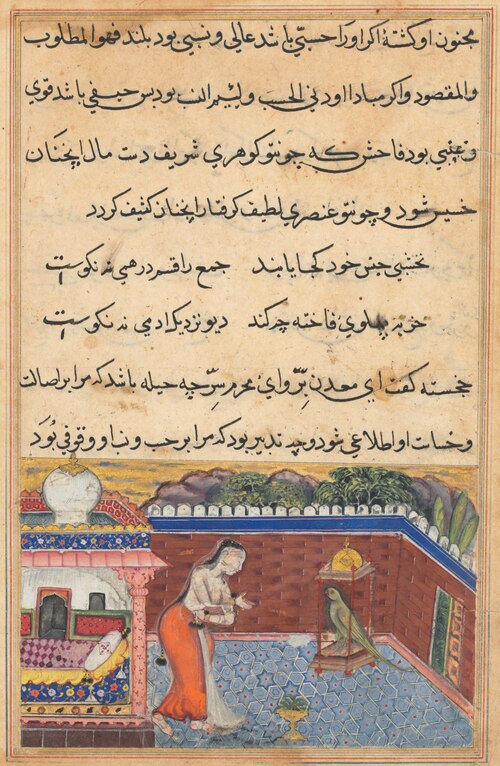 مجنون او کشتهٔ اکر او را حسبی باشد عالی و نسبی بود بلند فهو المطلوب
والمقصود واکر مبادا او دنی الحسب و لئیم النسب بود پس حیفی باشد قوی
و غبنی بود فاحش که چو تتو کوهری شریف دست مال اپخنان
خسیس شود و چو تتو عنصری لطیف کرفتار اپخنان کثیف کردد
نخشبی جنس خود کجا یابند جمع را قسم درهمی نه نکوست
خر به پهلوی فاخته چه کند دیو نزدیک ادمی نه نکوست
خجسته کفت ای معدن برّ و ای محرم سرّ چه حیله باشد که مرا بر اصالت
و خساست او اطلاعی شود و چه تدبیر بود که مرا بر حسب و نسب او وقوفی بُوَد